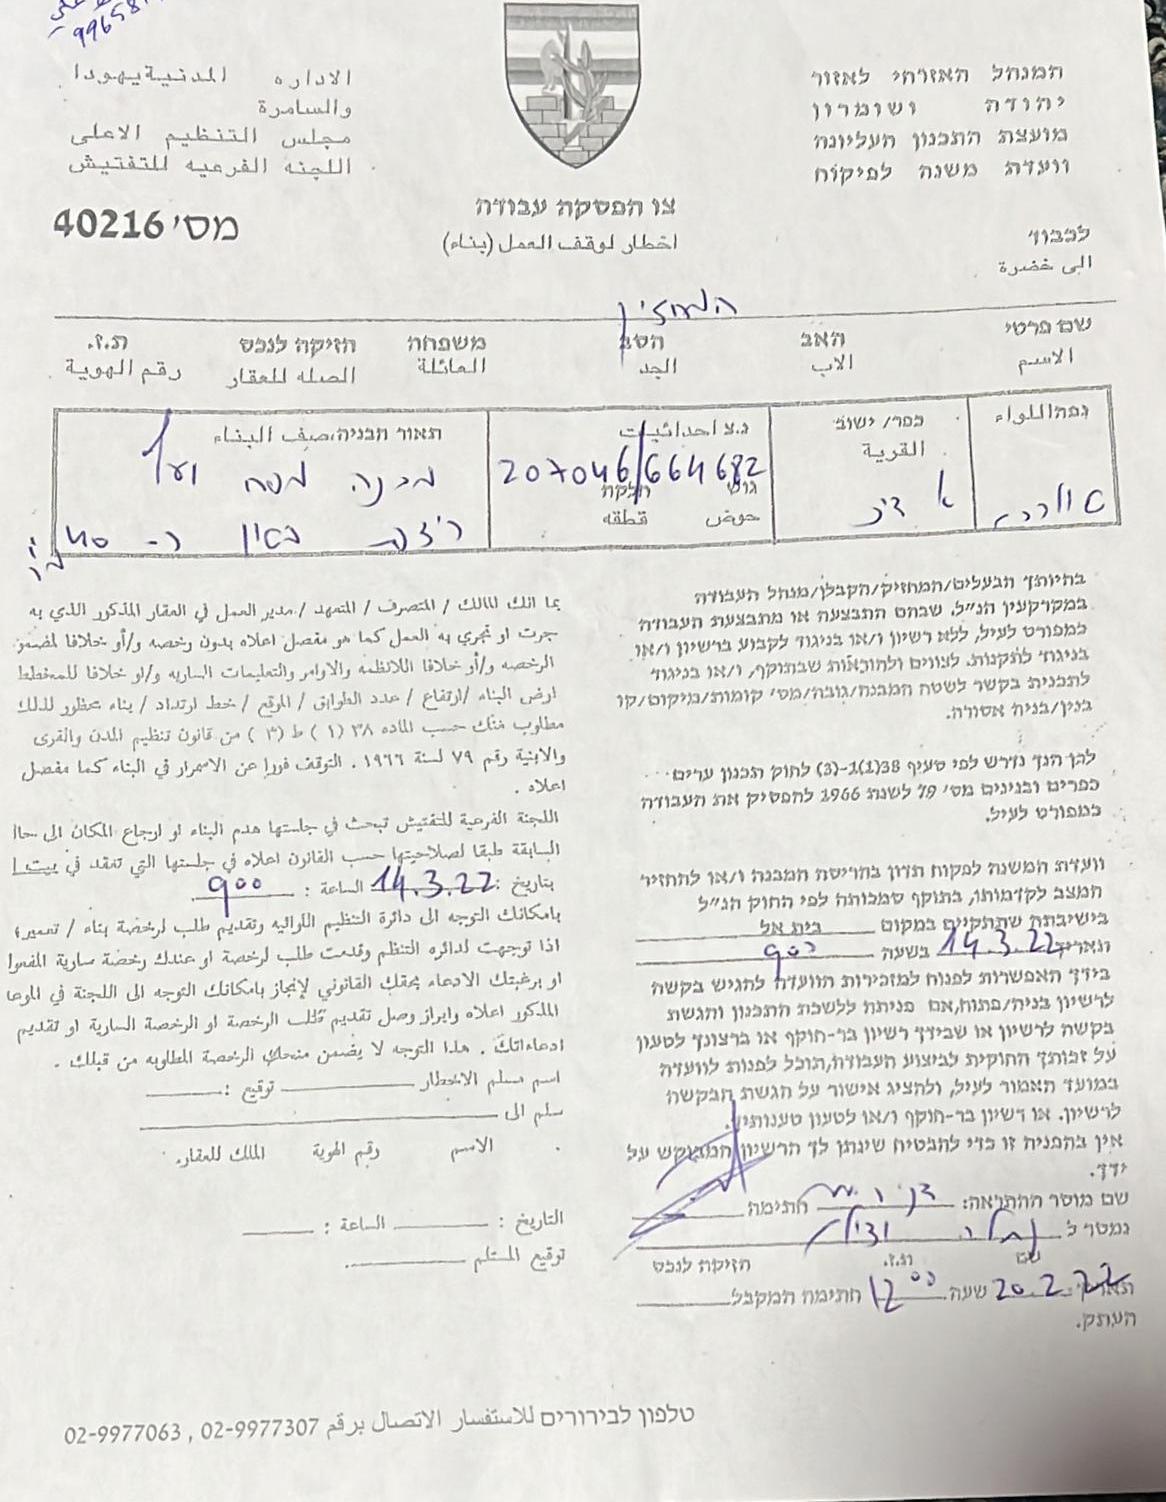 996581
המנהל האזרחי לאזור
יהודה ושומרון
מועצת התכנון העליונה
וועדת משנה לפיקוח
الاداره المدنية يهودا
والسامرة
مجلس التنظيم الاعلى
اللجنه الفرعيه للتفتيش
צו הפסקת עבודה
اخطار لوقف العمل (بناء)
מס' 40216
לכבוד
الى خضرة
המחזיק
שם פרטי האב הסב משפחה חזיקה לנכס ת.ז.
الاسم الاب الجد العائلة الصله للعقار رقم الهوية
נפה اللواء כפר/ ישוב נ.צ احداثيات תאור הבניה، صف البناء
القرية
207046/664682
גוש חלקה
حوض قطقه
מבנה
בהיותך הבעלים/המחזיק/הקבלן/מנהל העבודה
במקרקעין הנ"ל, שבהם התבצעה או מתבצעת העבודה
כמפורט לעיל, ללא רשיון ו/או בניגוד לקבוע ברשיון ו/או
בניגוד לתקנות, לצווים ולהוראות שבתוקף, ו/או בניגוד
לתכנית בקשר לשטח המבנה/גובה/מס' קומות/מיקום/קו
בנין/בניה אסורה.
לכן הנך נדרש לפי סעיף 38(1)1-(3) לחוק תכנון ערים
כפרים ובנינים מס' 79 לשנת 1966 להפסיק את העבודה
כמפורט לעיל.
וועדת המשנה לפקוח תדון בהריסת המבנה ו/או להחזיר
המצב לקדמותו, בתוקף סמכותה לפי החוק הנ"ל
בישיבתה שתתקיים במקום בית אל
ותאריך 14.3.22 בשעה 9:00
בידך האפשרות לפנות למזכירות הוועדה להגיש בקשה
לרשיון בניה/פתוח, אם פניתה ללשכת התכנון והגשת
בקשה לרשיון או שבידך רשיון בר-תוקף או ברצונך לטעון
על זכותך החוקית לביצוע העבודה, תוכל לפנות לוועדה
במועד האמור לעיל, ולהציג אישור על הגשת הבקשה
לרשיון. או רשיון בר-תוקף ו/או לטעון טענותיך.
אין בהפניה זו כדי להבטיח שינתן לך הרשיון המבוקש על
ידך.
שם מוסר ההתראה: חתימה
נמסר ל
שם ת.ז. חזיקה לנכס
תאריך: 20.2.22 שעה 12:00 חתימת המקבל
העתק.
بما انك المالك / المتصرف / المتعهد / مدير العمل في العقار المذكور الذي به
جرت او تجري به العمل كما هو مفصل اعلاه بدون رخصه و/أو خلافا لمضمو
الرخصه و/أو خلافا اللانظمه والاوامر والتعليمات الساريه و/او خلافا للمخطط
ارض البناء /ارتفاع / عدد الطوابق / الموقع / خط ارتداد / بناء محظور لذلك
مطلوب منك حسب الماده ٣٨ (١) ط (٣) من قانون تنظيم المدن والقرى
والابنية رقم ٧٩ لسنة ١٩٦٦ . التوقف فورا عن الاسمرار في البناء كما مفصل
اعلاه .
اللجنة الفرعية للتفتيش تبحث في جلستها هدم البناء او ارجاع المكان الى حاا
السابقة طبقا لصلاحيتها حسب القانون اعلاه في جلستها التي تعقد في بيت ا
بتاريخ : 14.3.22 الساعة : 9:00
بامكانك التوجه الى دائرة التنظيم اللوائيه وتقديم طلب لرخصة بناء / تعمير؛
اذا توجهت لدائره التنظم وقدمت طلب لرخصة او عندك رخصة سارية المفعوا
او برغبتك الادعاء بحقك القانوني لإنجاز بامكانك التوجه الى اللجنة في الموعا
المذكور اعلاه وابراز وصل تقديم طلب الرخصة او الرخصة السارية او تقديم
ادعاءاتك . هذا التوجه لا يضمن منحك الرخصة المطلوبه من قبلك .
اسم مسلم الاخطار توقيع :
سلم الى
الاسم رقم الهوية الملك للعقار.
التاريخ : الساعة :
توقيع المستلم
טלפון לבירורים للاستفسار الاتصال برقم 02-9977307 , 02-9977063